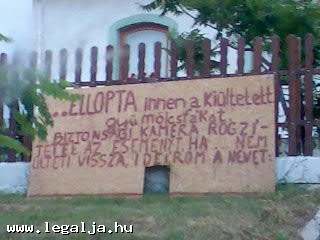 ..ELLOPTA innen a kiültetett
gyümölcsfákat.
BIZTONSÁGI KAMERA RÖGZÍ-
TETTE AZ ESEMÉNYT. HA ... NEM
ÜLTETI VISSZA, IDEÍROM A NEVÉT:
www.legalja.hu